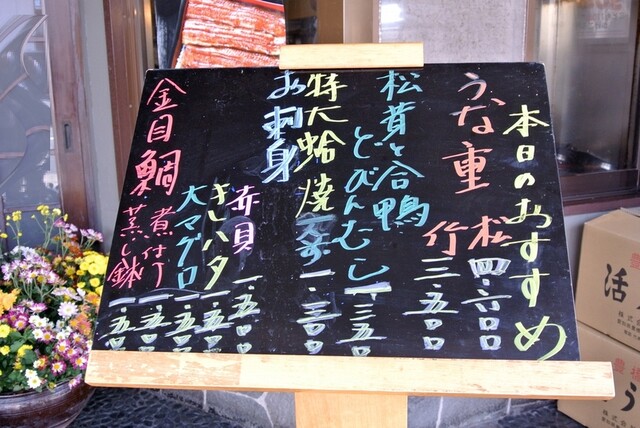 本日のおすすめ
うな重 松 四.六〇〇
竹 三.五〇〇
松茸と合鴨
どびんむし 一.三五〇
特大蛤焼 一.三〇〇
お刺身
赤貝 一.五〇〇
キハタ 一.五〇〇
大マグロ 一.五〇〇
金目鯛 煮付け 一.五〇〇
蒸し鉢 一.五〇〇
活
う